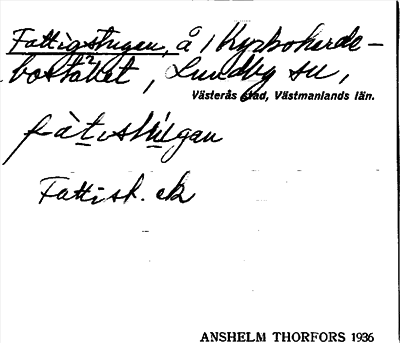 Fattigstugan, å i Kyrkoherde-
bostället, Lundby sn,
Västerås stad, Västmanlands län.
fàtɩstùgan
Fattist. ek
ANSHELM THORFORS 1936